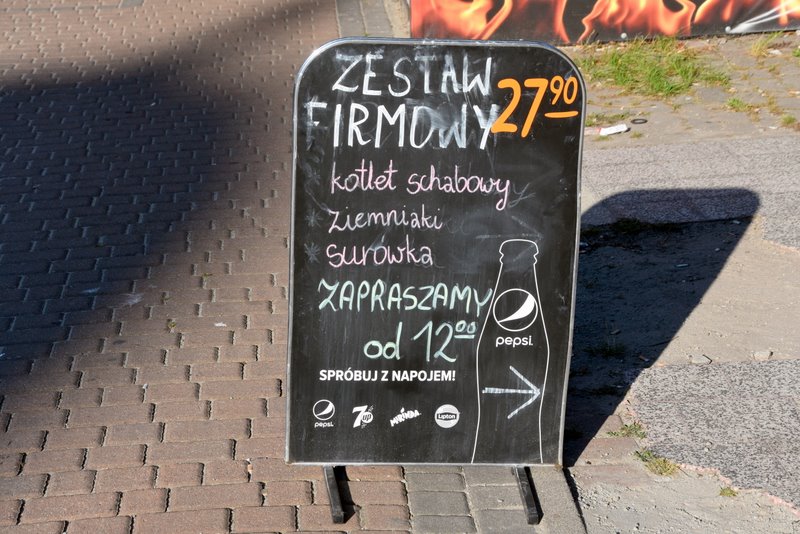 ZESTAW
FIRMOWY 27 90
kotlet schabowy
ziemniaki
surówka
ZAPRASZAMY
od 12 00
pepsi
SPRÓBUJ Z NAPOJEM!
pepsi 7up MIRINDA Lipton